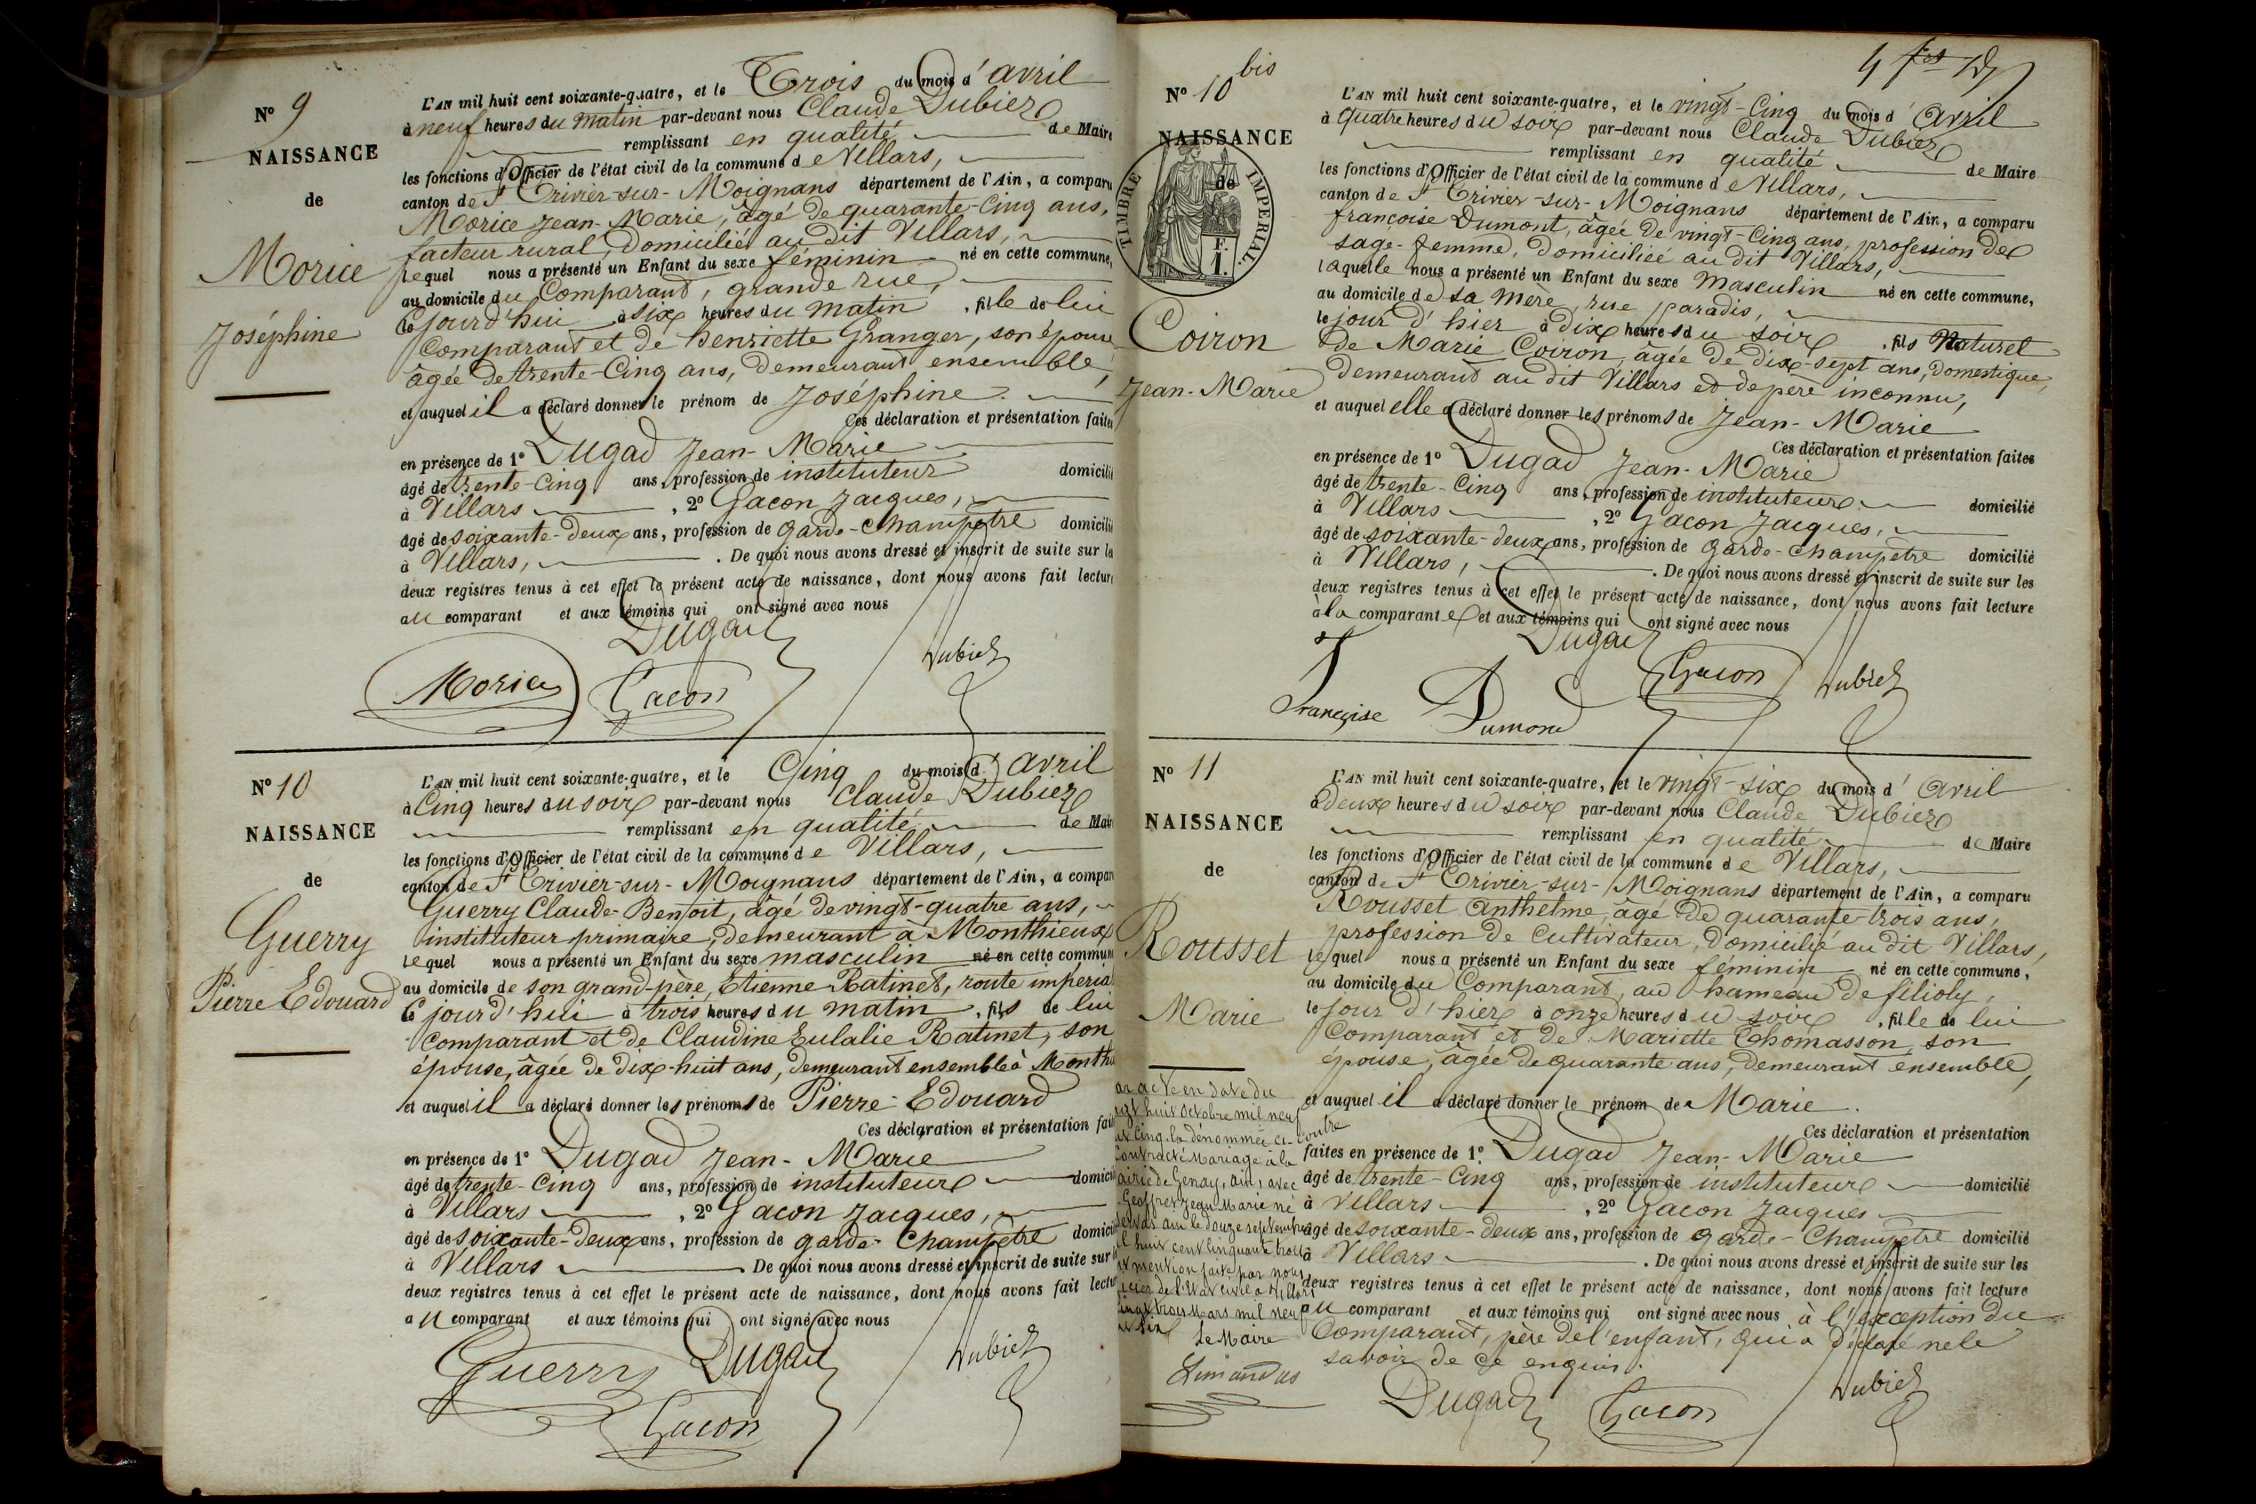 N° 9
NAISSANCE
de
Morice
Joséphine
L'AN mil huit cent soixante-quatre, et le Trois du mois d'avril
à neuf heures du matin par-devant nous Claude Dubiez
remplissant en qualité de Maire
les fonctions d'Officier de l'état civil de la commune de Villars,
canton de St Trivier-sur-Moignans département de l'Ain, a comparu
Morice Jean-Marie, âgé de quarante-cinq ans,
facteur rural, domicilié au dit Villars,
lequel nous a présenté un Enfant du sexe féminin né en cette commune,
au domicile du Comparant, grande rue,
le jourd'hui à six heures du matin, fille de lui
Comparant et de henriette Granger, son épouse
âgée de trente-cinq ans, demeurant ensemble,
et auquel il a déclaré donner le prénom de Joséphine.
Ces déclaration et présentation faites
en présence de 1° Dugad Jean-Marie
âgé de trente-cinq ans, profession de instituteur domicilié
à Villars, 2° Gacon Jacques,
âgé de soixante-deux ans, profession de garde-champêtre domicilié
à Villars, . De quoi nous avons dressé et inscrit de suite sur le
deux registres tenus à cet effet le présent acte de naissance, dont nous avons fait lecture
au comparant et aux témoins qui ont signé avec nous
Dugad
Morice Gacon Dubiez
N° 10
NAISSANCE
de
Guerry
Pierre Edouard
L'AN mil huit cent soixante-quatre, et le Cinq du mois d'avril
à Cinq heures du soir par-devant nous Claude Dubiez
remplissant en qualité de Maire
les fonctions d'Officier de l'état civil de la commune de Villars,
canton de St Trivier-sur-Moignans département de l'Ain, a compar
Guerry Claude-Benoit, âgé de vingt-quatre ans,
instituteur primaire, demeurant à Monthieux
lequel nous a présenté un Enfant du sexe masculin né en cette commun
au domicile de son grand-père, Etienne Ratinet, route imperia
le jourd'hui à trois heures du matin, fils de lui
Comparant et de Claudine Eulalie Ratinet, son
épouse, âgée de dix-huit ans, demeurant ensemble à Month
et auquel il a déclaré donner les prénoms de Pierre-Edouard
Ces déclaration et présentation fai
en présence de 1° Dugad Jean-Marie
âgé de trente-cinq ans, profession de instituteur domicili
à Villars, 2° Gacon Jacques,
âgé de soixante-deux ans, profession de garde-Champêtre domici
à Villars . De quoi nous avons dressé et inscrit de suite sur
deux registres tenus à cet effet le présent acte de naissance, dont nous avons fait lectur
au comparant et aux témoins qui ont signé avec nous
Guerry Dugad Dubiez
Gacon
N° 10 bis
NAISSANCE
de
TIMBRE IMPERIAL.
1 F.
Coiron
Jean-Marie
L'AN mil huit cent soixante-quatre, et le vingt-Cinq du mois d'avril
à quatre heures du soir par-devant nous Claude Dubiez
remplissant en qualité de Maire
les fonctions d'Officier de l'état civil de la commune de Villars,
canton de St Trivier-sur-Moignans département de l'Ain, a comparu
françoise Dumont, âgée de vingt-Cinq ans, profession de
sage-femme, domiciliée au dit Villars,
laquelle nous a présenté un Enfant du sexe Masculin né en cette commune,
au domicile de sa mère, rue paradis,
le jour d'hier à dix heures du soir, fils Naturel
de Marie Coiron, âgée de dix-sept ans, domestique,
demeurant au dit Villars et de père inconnu,
et auquel elle a déclaré donner les prénoms de Jean-Marie
Ces déclaration et présentation faites
en présence de 1° Dugad Jean-Marie
âgé de trente-Cinq ans, profession de instituteur domicilié
à Villars, 2° Gacon Jacques,
âgé de soixante-deux ans, profession de garde-champêtre domicilié
à Villars, . De quoi nous avons dressé et inscrit de suite sur les
deux registres tenus à cet effet le présent acte de naissance, dont nous avons fait lecture
à la comparante et aux témoins qui ont signé avec nous
Dugad Gacon Dubiez
Françoise Dumond
N° 11
NAISSANCE
de
Rousset
Marie
L'AN mil huit cent soixante-quatre, et le vingt-six du mois d'avril
à deux heures du soir par-devant nous Claude Dubiez
remplissant en qualité de Maire
les fonctions d'Officier de l'état civil de la commune de Villars,
canton de St Trivier-sur-Moignans département de l'Ain, a comparu
Rousset Anthelme, âgé de quarante-trois ans,
profession de cultivateur, domicilié au dit Villars,
lequel nous a présenté un Enfant du sexe féminin né en cette commune,
au domicile du Comparant, au hameau de filioly,
le jour d'hier à onze heures du soir, fille de lui
Comparant et de Mariette Thomasson, son
épouse, âgée de quarante ans, demeurant ensemble,
et auquel il a déclaré donner le prénom de Marie.
Ces déclaration et présentation
faites en présence de 1° Dugad Jean-Marie
âgé de trente-Cinq ans, profession de instituteur domicilié
à Villars, 2° Gacon Jacques
âgé de soixante-deux ans, profession de garde-Champêtre domicilié
à Villars . De quoi nous avons dressé et inscrit de suite sur les
deux registres tenus à cet effet le présent acte de naissance, dont nous avons fait lecture
au comparant et aux témoins qui ont signé avec nous à l'exception du
Comparant, père de l'enfant, qui a déclaré ne le
savoir de ce enquis.
Dugad Gacon Dubiez
acte en date du
huit Octobre mil neuf
cinq, la dénommée ci-contre
contracté Mariage à la
airie de Genay, Ain, avec
Geoffray Jean Marie né
ain le douze septembre
huit cent cinquante trois
mention faite par nous
de l'Etat civil à Villars
trois Mars mil neuf
six
Le Maire